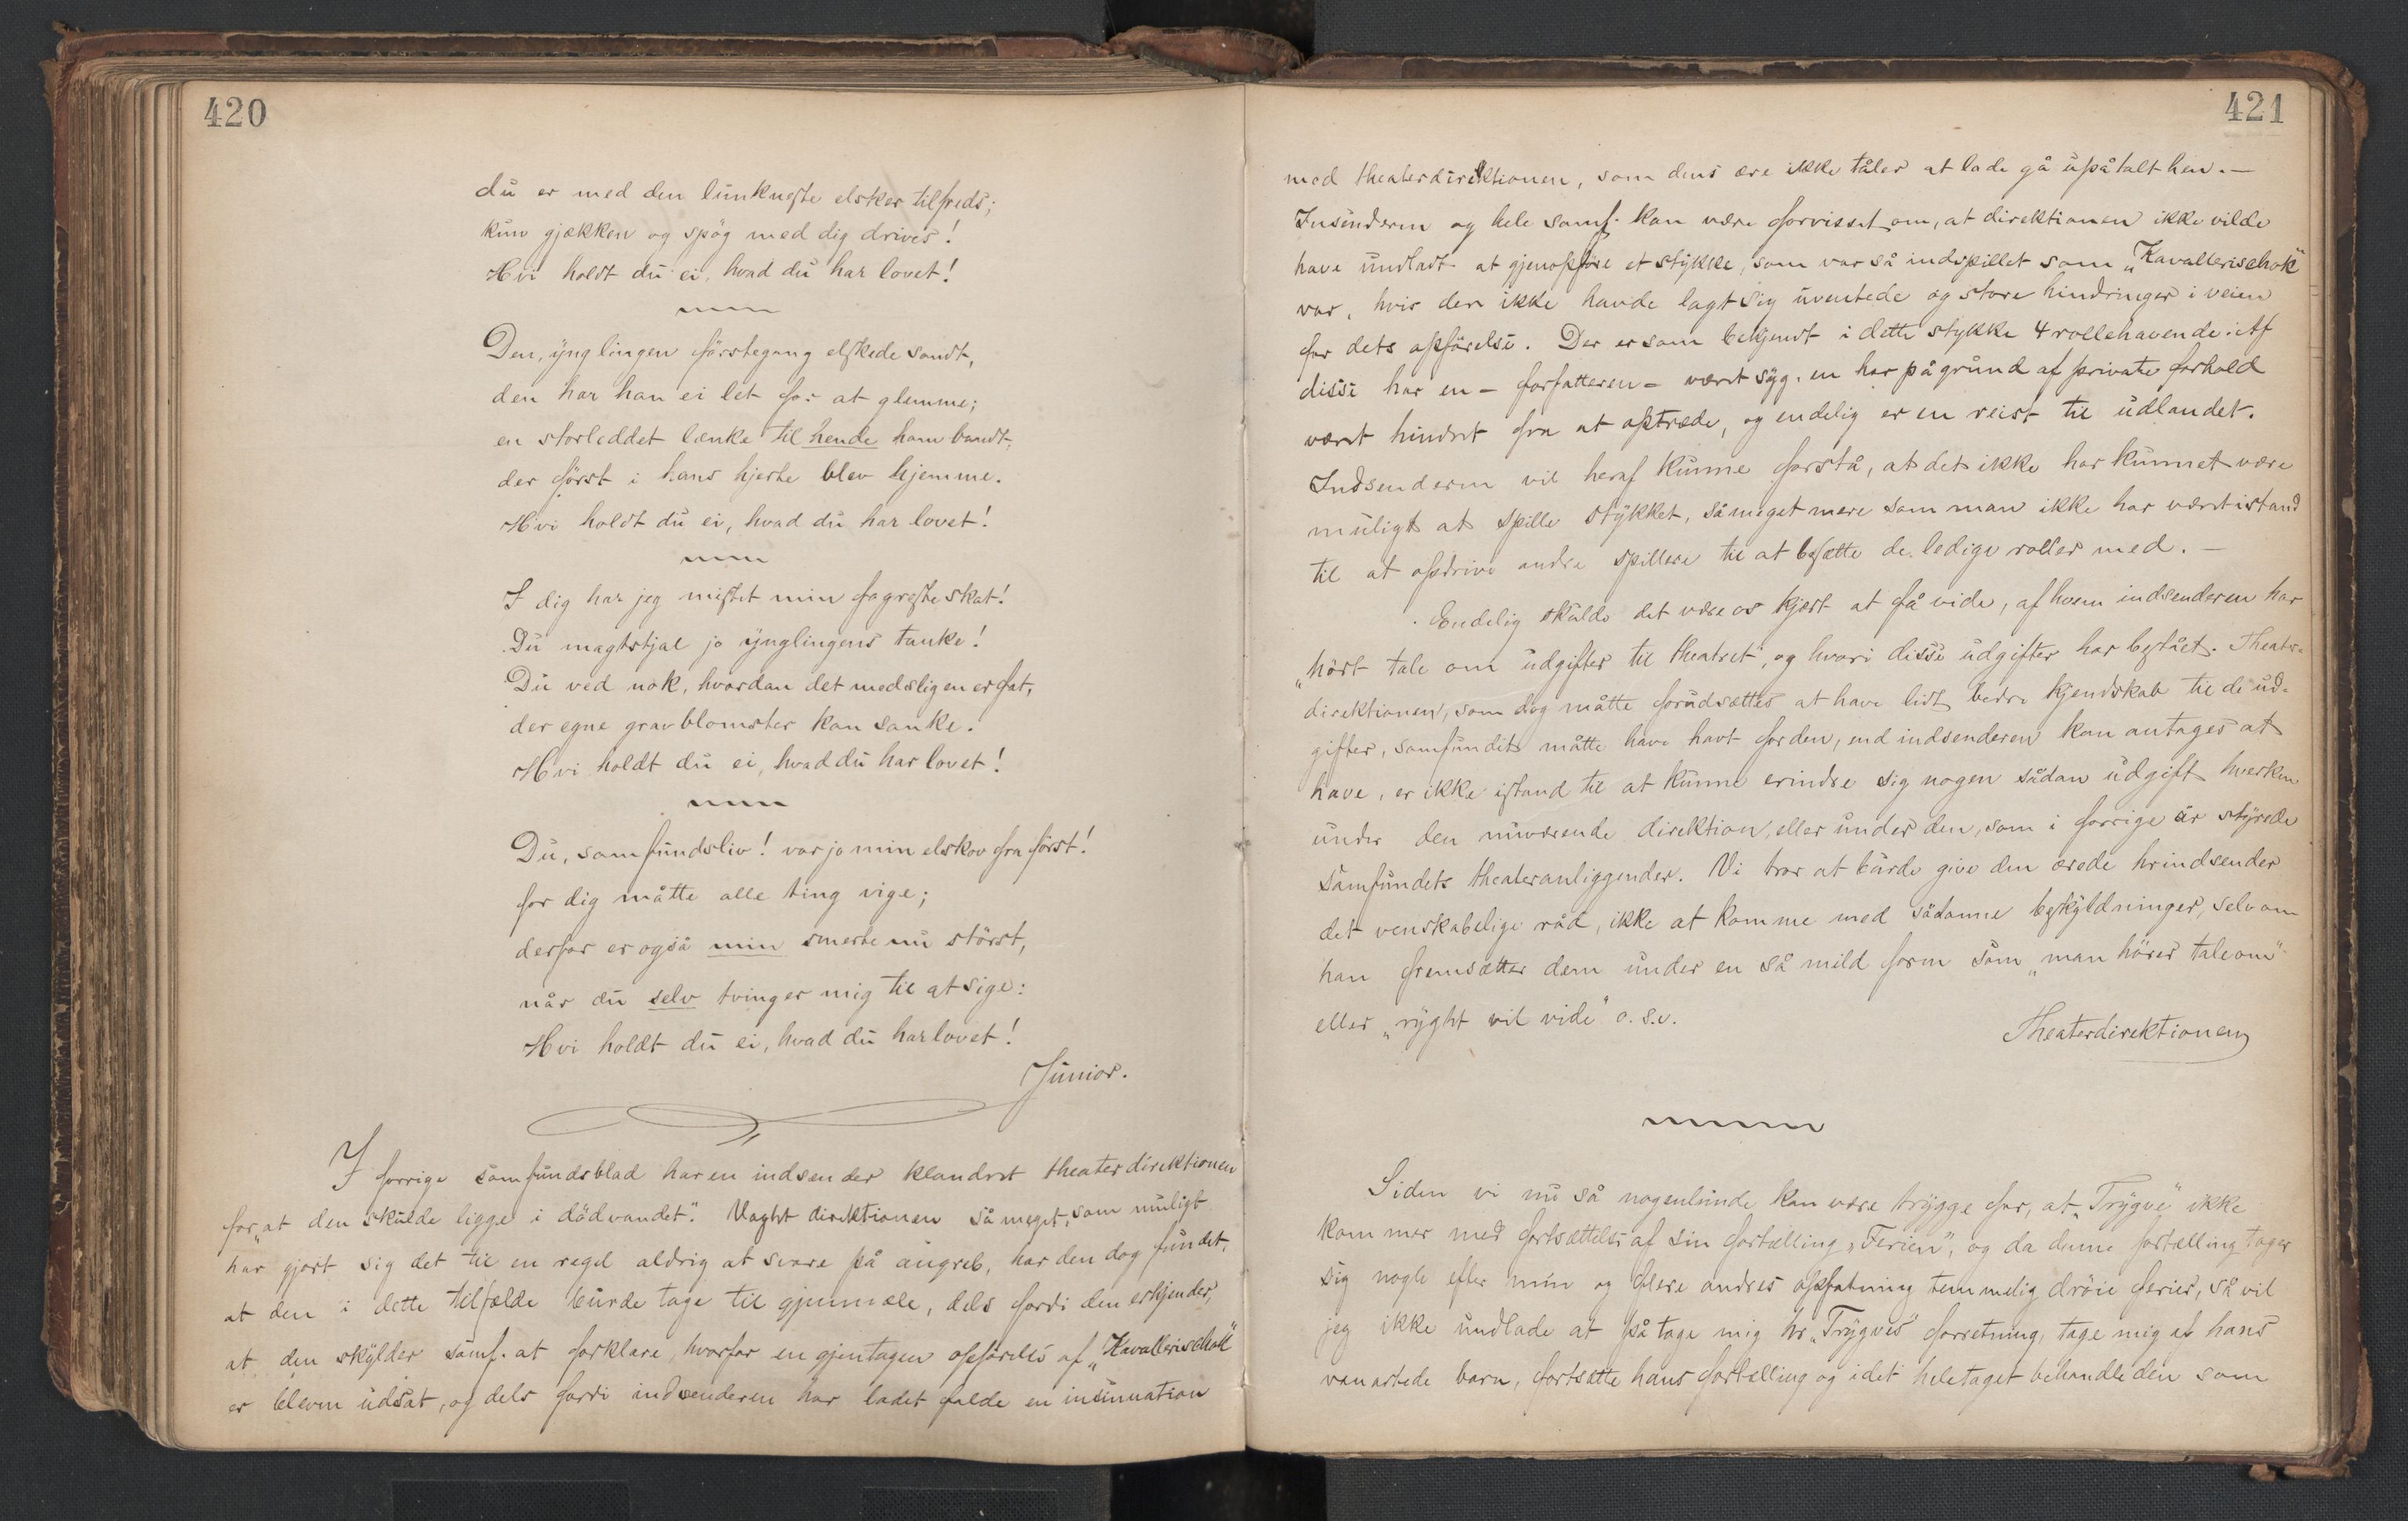 420
du er med den lunkneste elsker tilfreds;
kun gjækken og spøg med dig drives!
Hvi holdt du ei, hvad du har lovet!
Den, ynglingen förstegang elskede sandt,
den har han ei let for at glemme;
en storleddet lænke til hende ham bandt,
der först i hans hjerte blev hjemme.
Hvi holdt du ei, hvad du har lovet!
I dig har jeg mistet min fagreste skat!
Du magtstjal jo ynglingens tanke!
Du ved nok, hvordan det med sligen er fat,
der egne gravblomster kan sanke.
Hvi holdt du ei, hvad du har lovet!
Du, samfundsliv! var jo min elskov fra först!
for dig måtte alle ting vige;
derfor er også min smerte nu störst,
når du selv tvinger mig til at sige:
Hvi holdt du ei, hvad du har lovet!
Junior.
I forrige samfundsblad har en indsender klandret theaterdirektionen
for „at den skulde ligge i dödvandet". Uagtet direktionen så meget, som muligt
har gjort sig det til en regel aldrig at svare på angreb, har den dog fundet,
at den i dette tilfælde burde tage til gjenmæle, dels fordi den erkjender,
at den skylder samf. at forklare, hvorfor en gjentagen opförelse af „Kavallerischok"
er bleven udsat, og dels fordi indsenderen har ladet falde en insinuation
421
mod theaterdirektionen, som dens ære ikke tåler at lade gå upåtalt hen. —
Insenderen og hele samf. kan være forvisset om, at direktionen ikke vilde
have undladt at gjenopföre et stykke, som var så indspillet som „Kavallerischok"
var, hvis der ikke havde lagt sig uventede og store hindringer i veien
for dets opförelse. Der er som bekjendt i dette stykke 4 rollehavende. Af
disse har en – forfatteren – været syg, en har på grund af private forhold
været hindret fra at optræde, og endelig er en reist til udlandet.
Indsenderen vil heraf kunne forstå, at det ikke har kunnet være
muligt at spille stykket, såmeget mere som man ikke har været istand
til at opdrive andre spillere til at besætte de ledige roller med. —
Endelig skulde det være os kjært at få vide, af hvem indsenderen har
„hört tale om udgifter til theatret", og hvori disse udgifter har bestået. Theater-
direktionen, som dog måtte forudsættes at have lidt bedre kjendskab til de ud-
gifter, samfundet måtte have havt for den, end indsenderen kan antages at
have, er ikke istand til at kunne erindre sig nogen sådan udgift hverken
under den nuværende direktion, eller under den, som i forrige år styrede
samfundets theateranliggender. Vi tror at burde give den ærede hr indsender
det venskabelige råd, ikke at komme med sådanne beskyldninger, selv om
han fremsætter dem under en så mild form som „man hörer tale om"
eller „rygtet vil vide" o.s.v.
Theaterdirektionen
Siden vi nu så nogenlunde kan være trygge for, at „Trygve" ikke
kommer med fortsættelse af sin fortælling „Ferien", og da denne fortælling tager
sig nogle efter min og flere andres opfatning temmelig dröie ferier, så vil
jeg ikke undlade at påtage mig hr „Trygves" forretning, tage mig af hans
vanartede barn, fortsætte hans fortælling og i det hele taget behandle den som